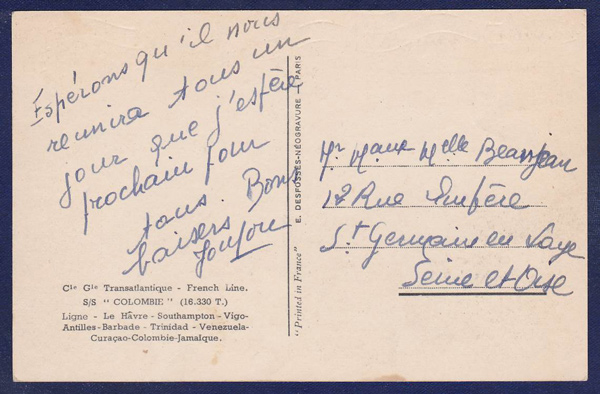 Espérons qu'il nous
reunira tous un
jour que j'espère
prochain pour
tous. Bons
baisers.
Cie Gle Transatlantique - French Line.
S/S " COLOMBIE " (16.330 T.)
Ligne - Le Hâvre - Southampton - Vigo-
Antilles - Barbade - Trinidad - Venezuela-
Curaçao-Colombie-Jamaïque.
"Printed in France" E. DESFOSSÉS-NÉOGRAVURE - PARIS
Mr Melle Beaujean
12 Rue
St Germain en Laye
Seine et Oise